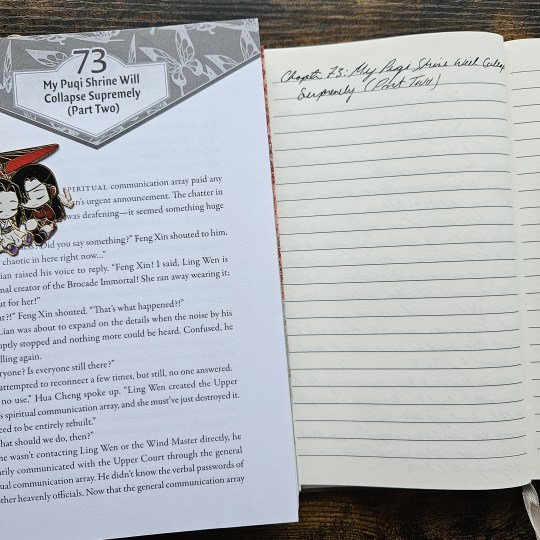 73
My Puqi Shrine Will
Collapse Supremely
(Part Two)
SPIRITUAL communication array paid any
an's urgent announcement. The chatter in
was deafening—it seemed something huge
Did you say something?" Feng Xin shouted to him.
chaotic in here right now..."
ian raised his voice to reply. "Feng Xin! I said, Ling Wen is
nal creator of the Brocade Immortal! She ran away wearing it;
ut for her!"
at?!" Feng Xin shouted. "That's what happened?!"
Lian was about to expand on the details when the noise by his
uptly stopped and nothing more could be heard. Confused, he
lling again.
ryone? Is everyone still there?"
attempted to reconnect a few times, but still, no one answered.
no use," Hua Cheng spoke up. "Ling Wen created the Upper
s spiritual communication array, and she must've just destroyed it.
eed to be entirely rebuilt."
hat should we do, then?"
he wasn't contacting Ling Wen or the Wind Master directly, he
arily communicated with the Upper Court through the general
ual communication array. He didn't know the verbal passwords of
ther heavenly officials. Now that the general communication array
Chapter 73: My Puqi Shrine Will Collap
Supremely (Part Two)